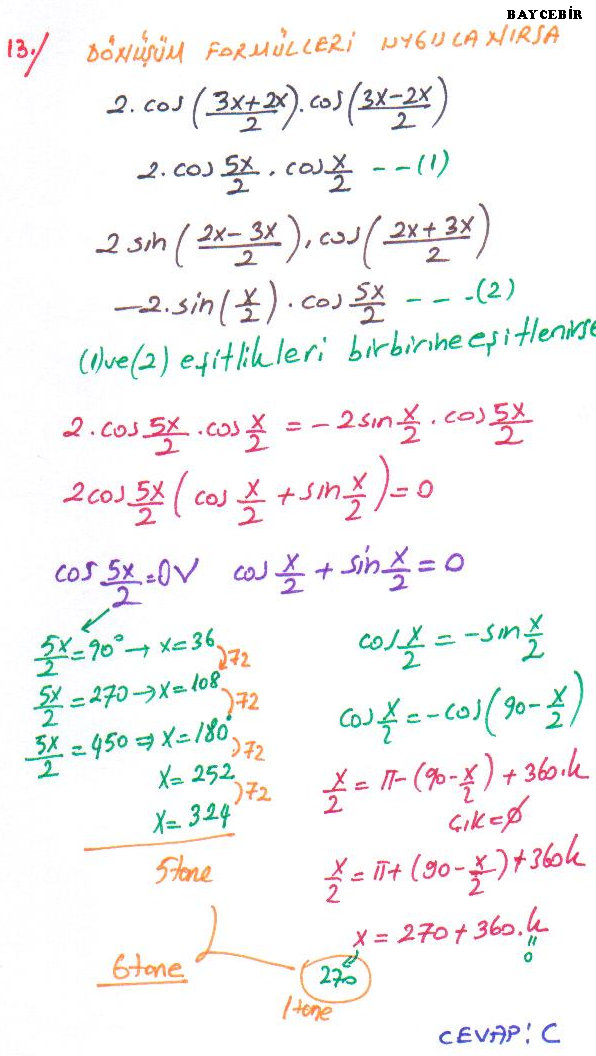 BAYCEBİR
13./ DÖNÜŞÜM FORMÜLLERİ UYGULANIRSA
2.cos((3x+2x)/2).cos((3x-2x)/2)
2.cos 5x/2 . cos x/2 --(1)
2 sin((2x-3x)/2).cos((2x+3x)/2)
-2.sin(x/2).cos 5x/2 ---(2)
(1)ve(2) eşitlikleri birbirine eşitlenirse
2.cos 5x/2 .cos x/2 = -2 sin x/2 . cos 5x/2
2cos 5x/2 (cos x/2 + sin x/2) = 0
cos 5x/2 = 0 V cos x/2 + sin x/2 = 0
5x/2 = 90° → x=36
72
5x/2 = 270 → x=108
72
5x/2 = 450 ⇒ x=180°
72
x=252
72
x=324
5 tane
cos x/2 = -sin x/2
cos x/2 = -cos(90 - x/2)
x/2 = π-(90-x/2)+360.k
Ç.K=∅
x/2 = π+(90-x/2)+360k
x = 270+360.k
"
0
6 tane
270
1 tane
CEVAP: C